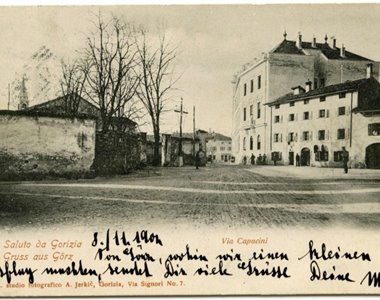 Saluto da Gorizia
Gruss aus Görz
Via Capucini
8./11. 1900
Von Görz, wohin wir einen kleinen
machten, sendet Dir viele Grüsse
Deine
studio fotografico A. Jerkič, Gorizia, Via Signori No. 7.